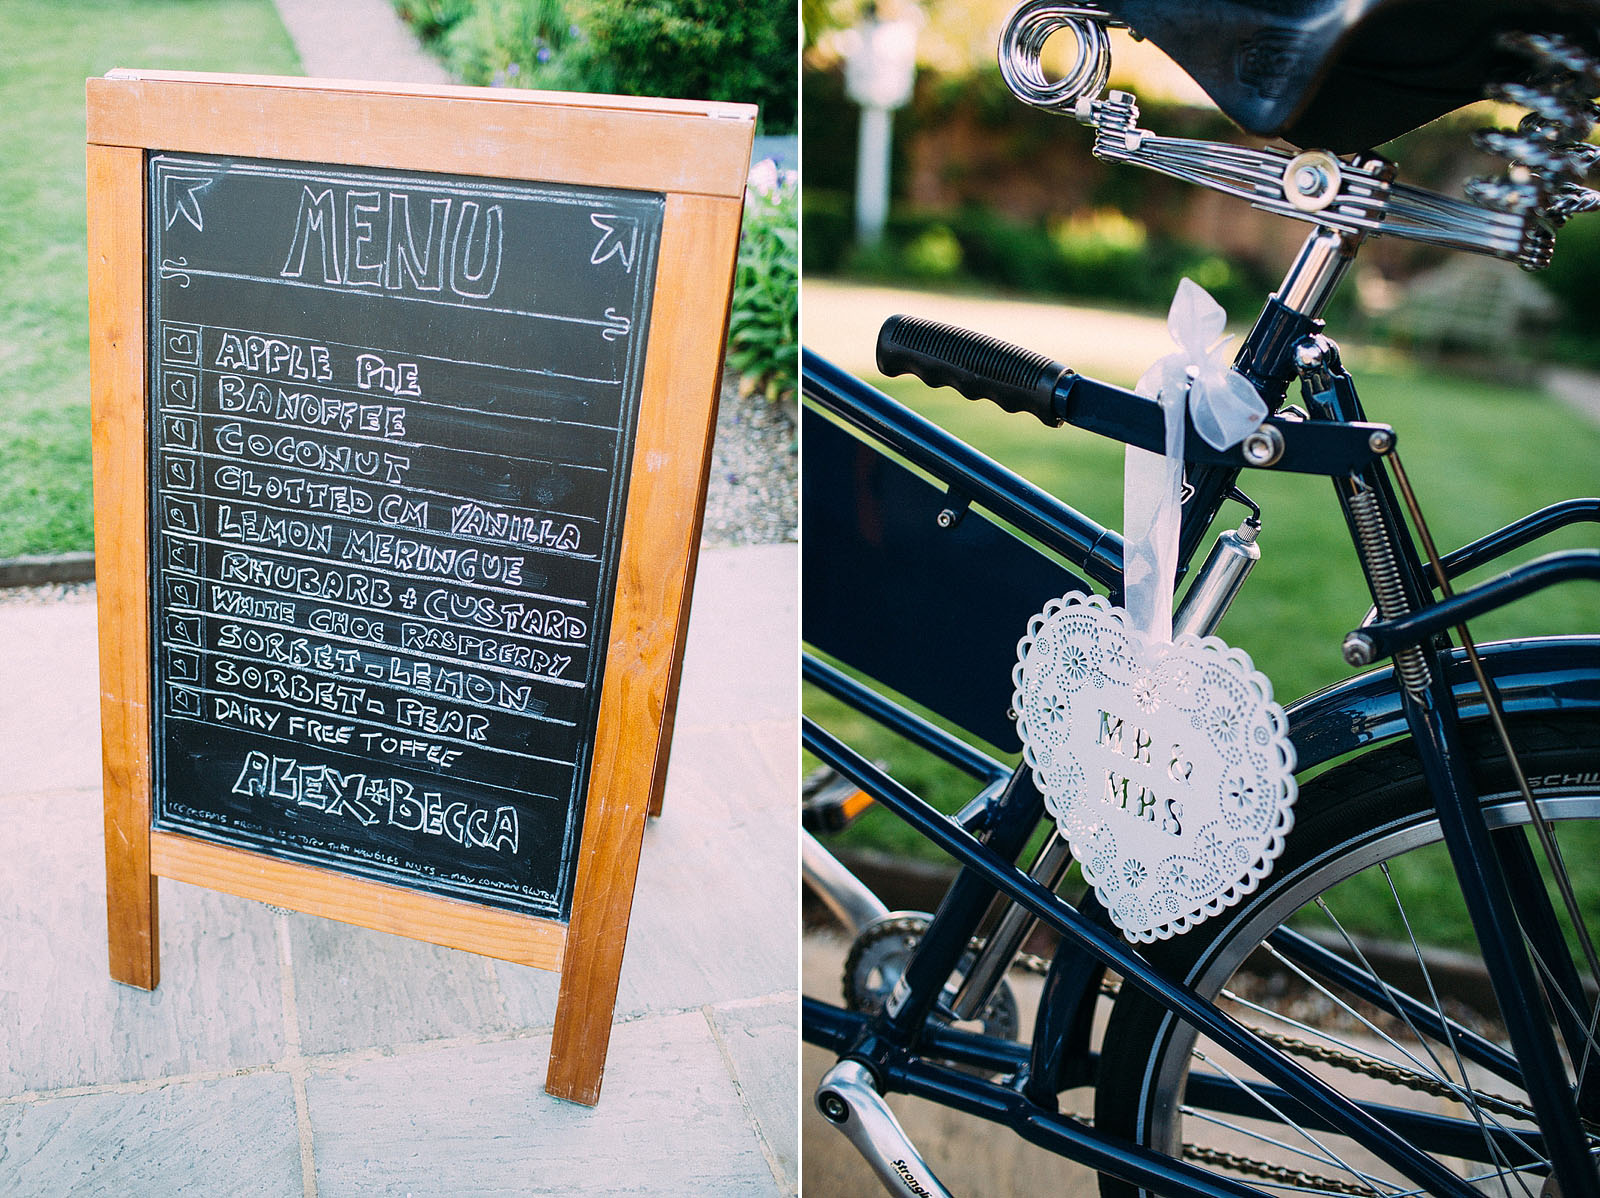 MENU
APPLE PIE
BANOFFEE
COCONUT
CLOTTED CM VANILLA
LEMON MERINGUE
RHUBARB + CUSTARD
WHITE CHOC RASPBERRY
SORBET - LEMON
SORBET - PEAR
DAIRY FREE TOFFEE
ALEX + BECCA
ICECREAMS FROM A FACTORY THAT HANDLES NUTS - MAY CONTAIN GLUTEN
MR &
MRS
SCHW
Strongli